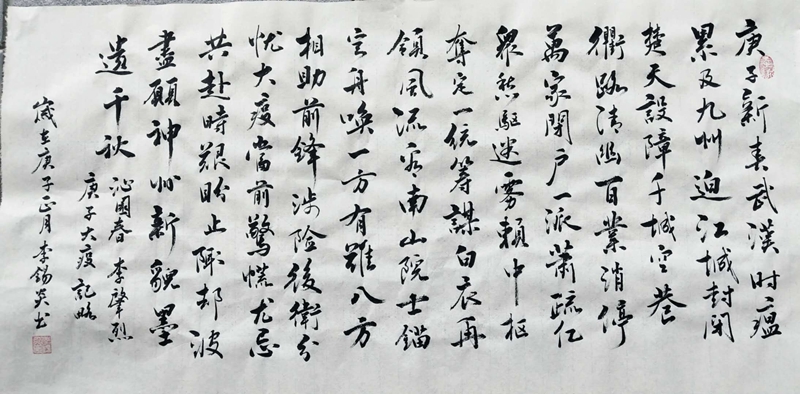 庚子新春武漢时瘟
累及九州迫江城封闭
楚天設障千城空巷
衢路清幽百業消停
萬家閉户一派蕭疏仁
愁駆迷雾賴中枢
奪定一統筹謀白衣再
領風流看南山院士錨
定舟唤一方有難八方
相助前鋒涉险後衛分
忧大疫當前驚慌尤忌
共赴時艱盼止却波
盡願神州新貌墨
遺千秋
沁園春 李肇烈
庚子大疫記略
歲在庚子正月李錫英书